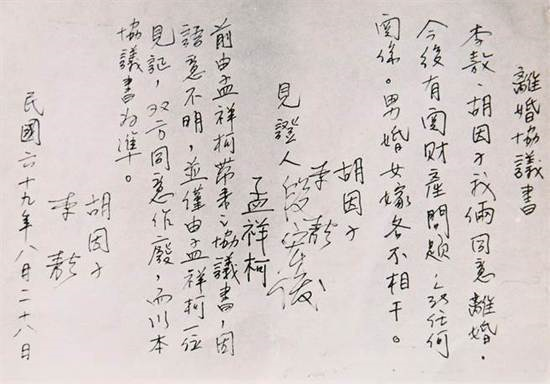 離婚協議書
李敖、胡因子我倆同意離婚、
今後有関財產問題,任何
関係。男婚女嫁各不相干。
胡因子
李敖
見證人 段宏俊
孟祥柯
前由孟祥柯帶來之協議書,因
語意不明,並僅由孟祥柯一位
見証,双方同意作廢,而以本
協議書為準。
胡因子
李敖
民國六十九年八月二十八日